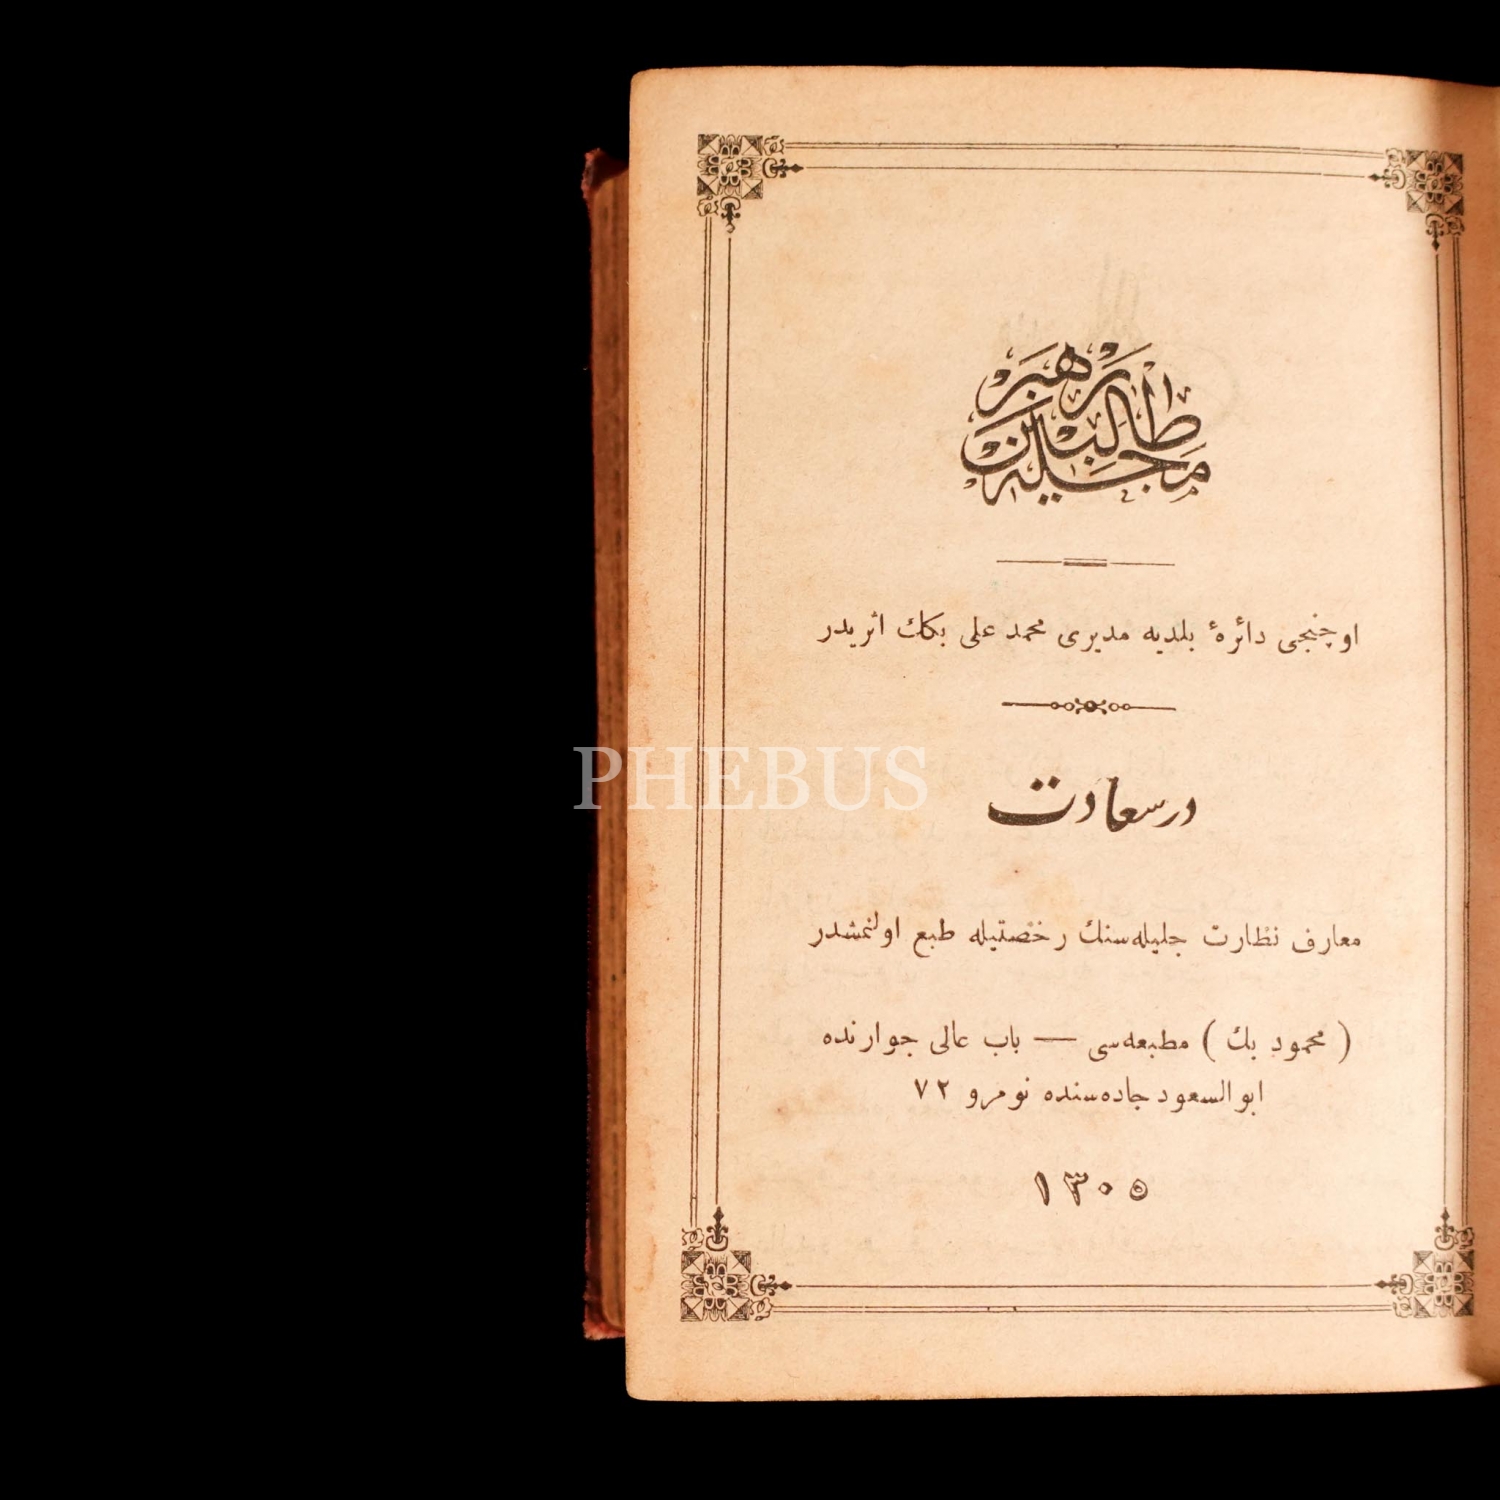 رهبر
طالبین
مجله
اوچنجی دائرهٔ بلدیه مدیری محمد علی بكك اثریدر
درسعادت
معارف نظارت جلیله‌سنك رخصتیله طبع اولنمشدر
( محمود بك ) مطبعه‌سی — باب عالی جوارنده
ابو السعود جاده‌سنده نومرو ٧٢
١٣٠٥
PHEBUS